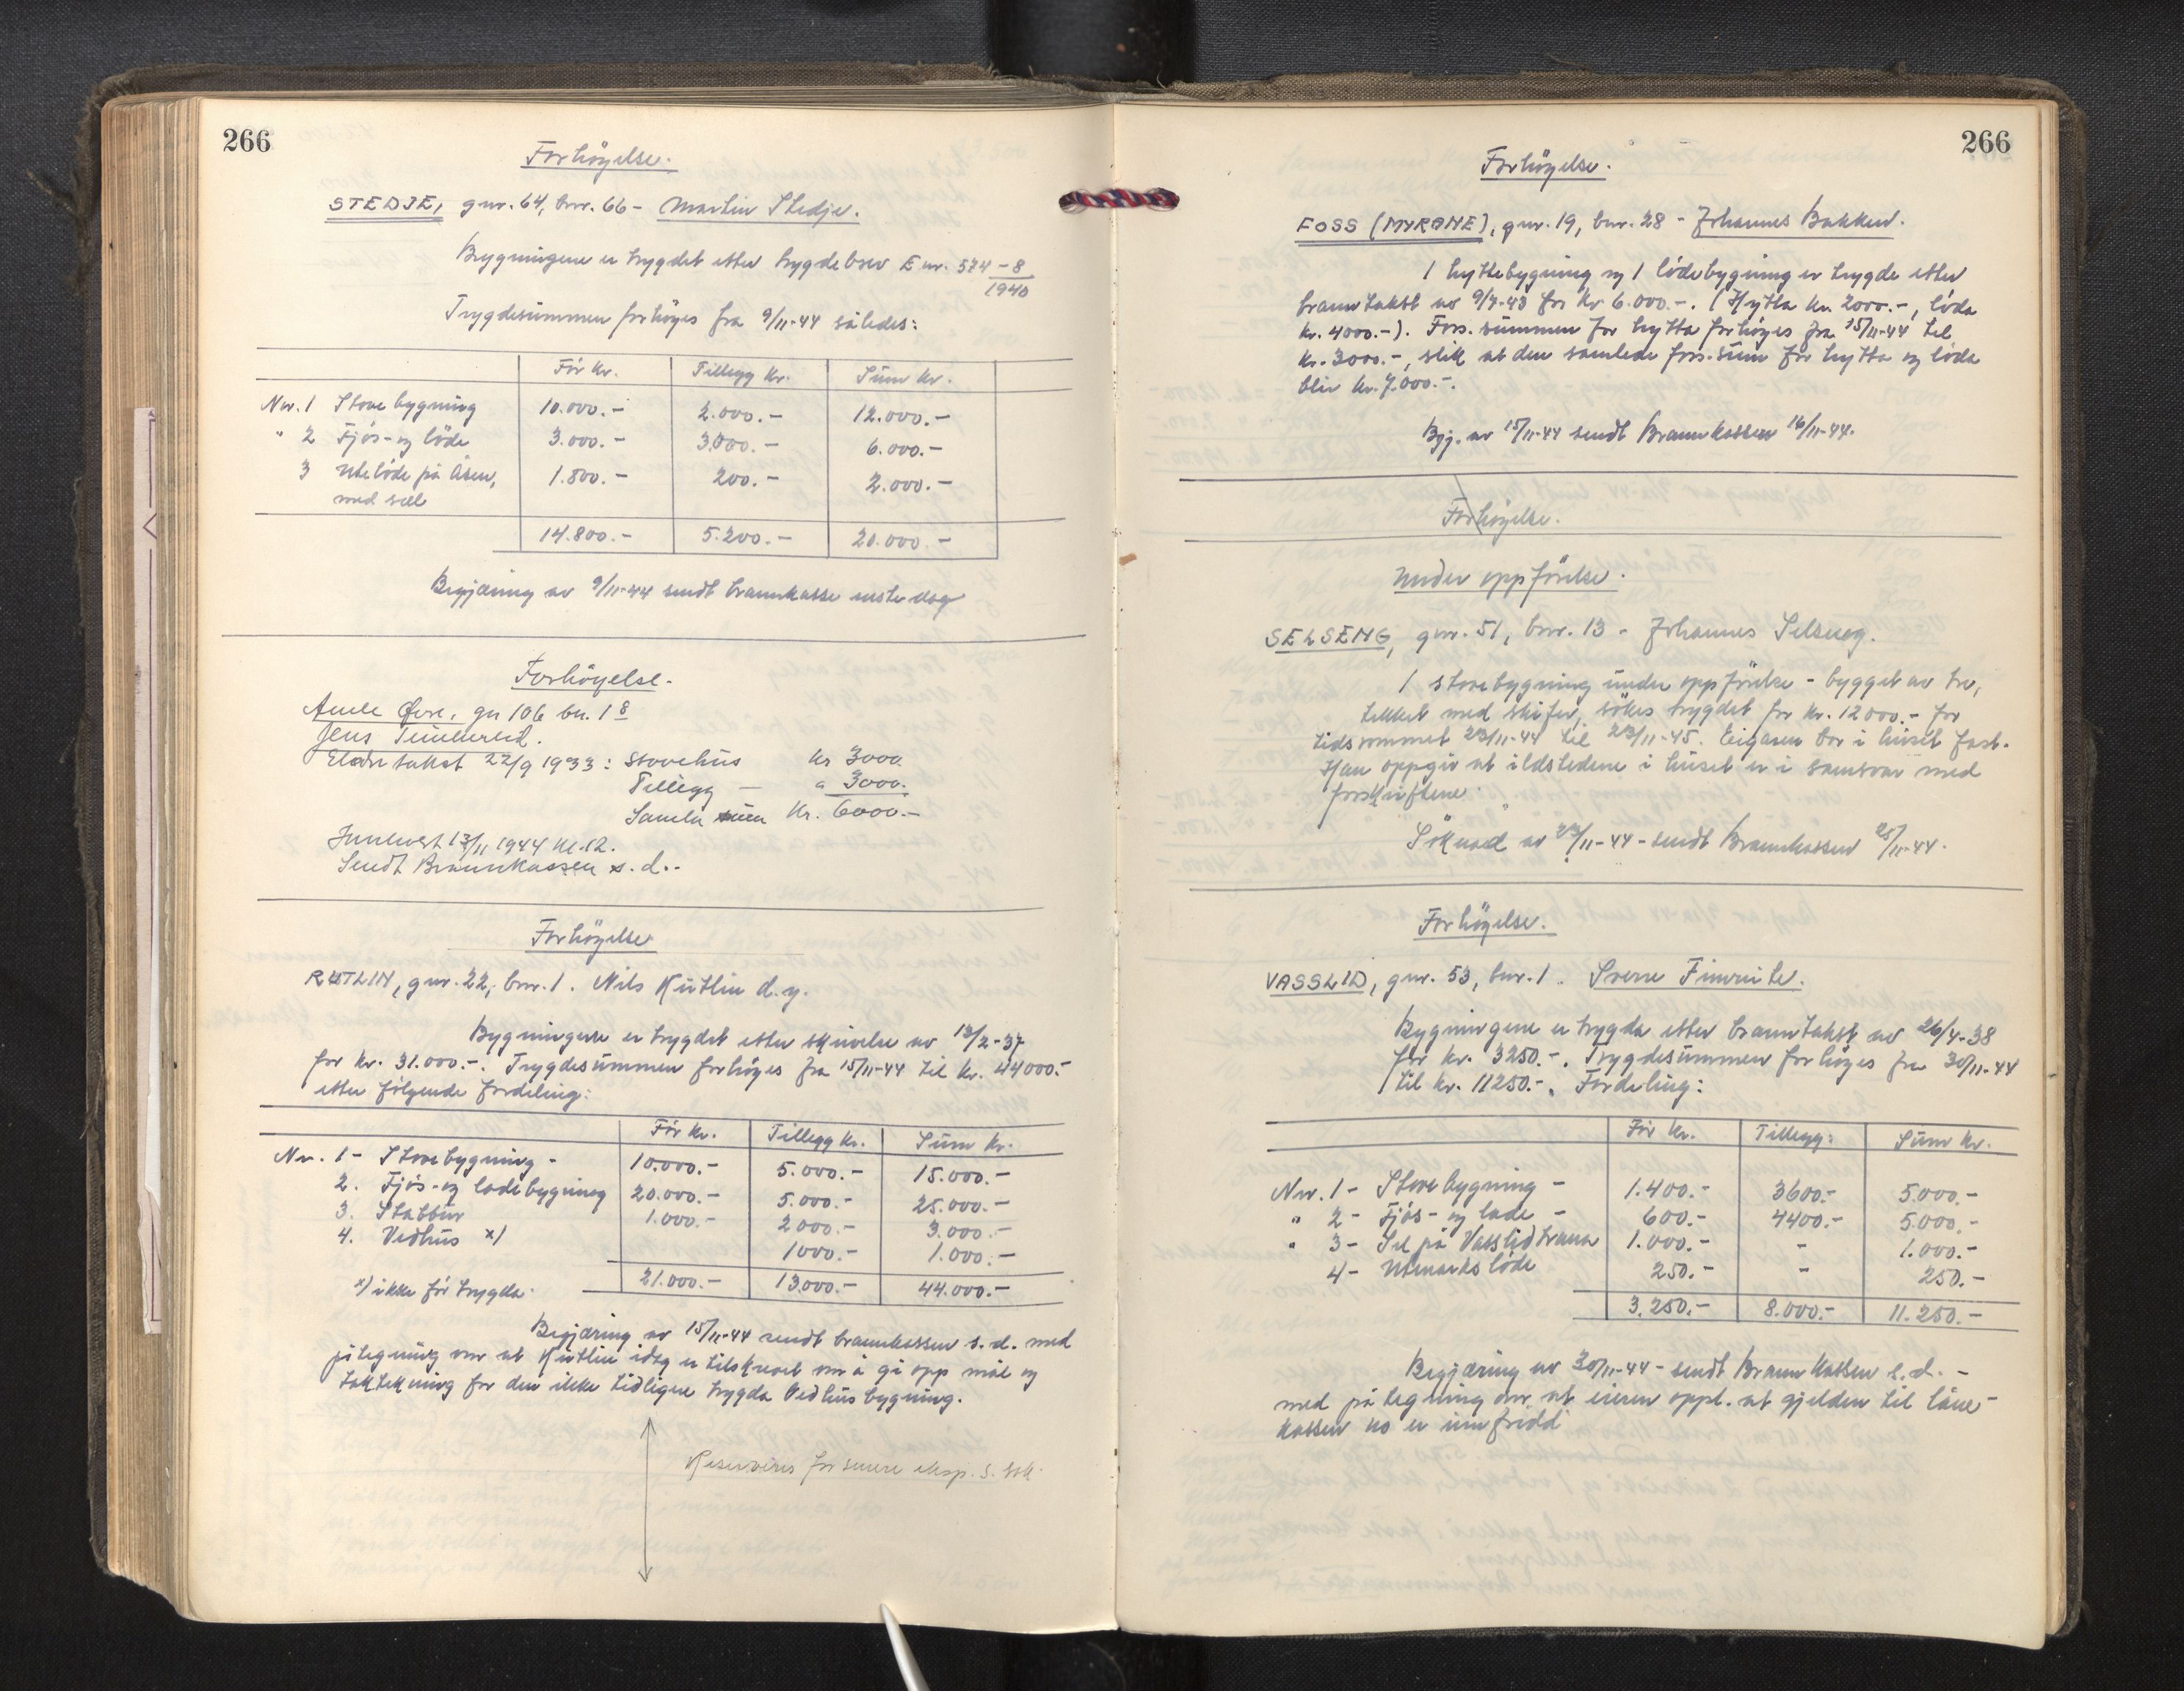 266
Forhöyelse.
STEDJE, gnr. 64, bnr. 66 - Martin Stedje.
Bygningene er trygdet etter trygdebrev E nr. 574-8
1940
Trygdesummen forhöyes fra 9/11-44 således:
För kr. Tillegg kr. Sum kr.
Nr. 1 Stovebygning 10.000.- 2.000.- 12.000.-
" 2 Fjös- og löde 3.000.- 3.000.- 6.000.-
3 Uteløde på Åsen, 1.800.- 200.- 2.000.-
med sæl
14.800.- 5.200.- 20.000.-
Begjæring av 9/11-44 sendt brannkasse neste dag
Forhöyelse.
Amle Øvre, gn 106 bn. 18
Jens Timberlid.
Eldre takst 22/9 1933: Stovehus kr 3000.
Tillegg — " 3000.
Samla sum Kr. 6000.-
Innlevert 13/11 1944 kl. 12.
Sendt Brannkassen s. d..
Forhöyelse
RUTLIN, gnr. 22, bnr. 1. Nils Rutlin d.y.
Bygningene er trygdet etter skrivelse av 13/2-37
for kr. 31.000.-. Trygdesummen forhöyes fra 15/11-44 til kr. 44000.-
etter følgende fordeling:
För kr. Tillegg kr. Sum kr.
Nr. 1 - Stovebygning - 10.000.- 5.000.- 15.000.-
2. Fjös- og ladebygning 20.000.- 5.000.- 25.000.-
3. Stabbur 1.000.- 2000.- 3.000.-
4. Vedhus x) 1000.- 1.000.-
21.000.- 13.000.- 44.000.-
x) ikke för trygda.
Begjæring av 15/11-44 sendt brannkassen s. d. med
påtegning om at Rutlin idag er tilskrevet om å gi opp mål og
taktekning for den ikke tidligere trygda Vedhusbygning.
Reserveres for senere eksp. S.
266
Forhöyelse.
FOSS (MYRANE), gnr. 19, bnr. 28 - Johannes Bakken.
1 hyttebygning og 1 lödebygning er trygde etter
branntakst av 9/7-43 for kr 6.000.-. (Hytta kr. 2000.-, löda
kr. 4000.-). Fors. summen for hytta forhöyes fra 15/11-44 til
kr. 3000.-, slik at den samlede fors. sum for hytta og löda
blir kr. 7.000.-.
Bgj. av 15/11-44 sendt Brannkassen 16/11-44.
Forhöyelse.
Under oppförelse.
SELSENG, gnr. 51, bnr. 13 - Johannes Selseng.
1 stovebygning under oppförelse - bygget av tre,
tekket med skifer, sökes trygdet for kr. 12000.- for
tidsrommet 23/11-44 til 23/11-45. Eigaren bor i huset fast.
Han oppgir at ildstedene i huset er i samsvar med
forskriftene.
Söknad av 23/11-44 - sendt Brannkassen 25/11-44.
Forhöyelse.
VASSLID, gnr. 53, bnr. 1. Sverre Fimreite.
Bygningene er trygda etter branntakst av 26/4-38
for kr. 3250.-. Trygdesummen forhöyes fra 30/11-44
til kr. 11250.-. Fordeling:
För kr. Tillegg: Sum kr.
Nr. 1 - Stovebygning - 1.400.- 3600.- 5.000.-
" 2 - Fjös- og lade - 600.- 4400.- 5.000.-
" 3 - Sel på Vasslidtrana 1.000.- - 1.000.-
4 - Utmarkslöde 250.- - 250.-
3.250.- 8.000.- 11.250.-
Begjæring av 30/11-44 - sendt Brannkassen s.d. -
med påtegning om at eieren oppl. at gjelden til låne-
kassen no er innfridd